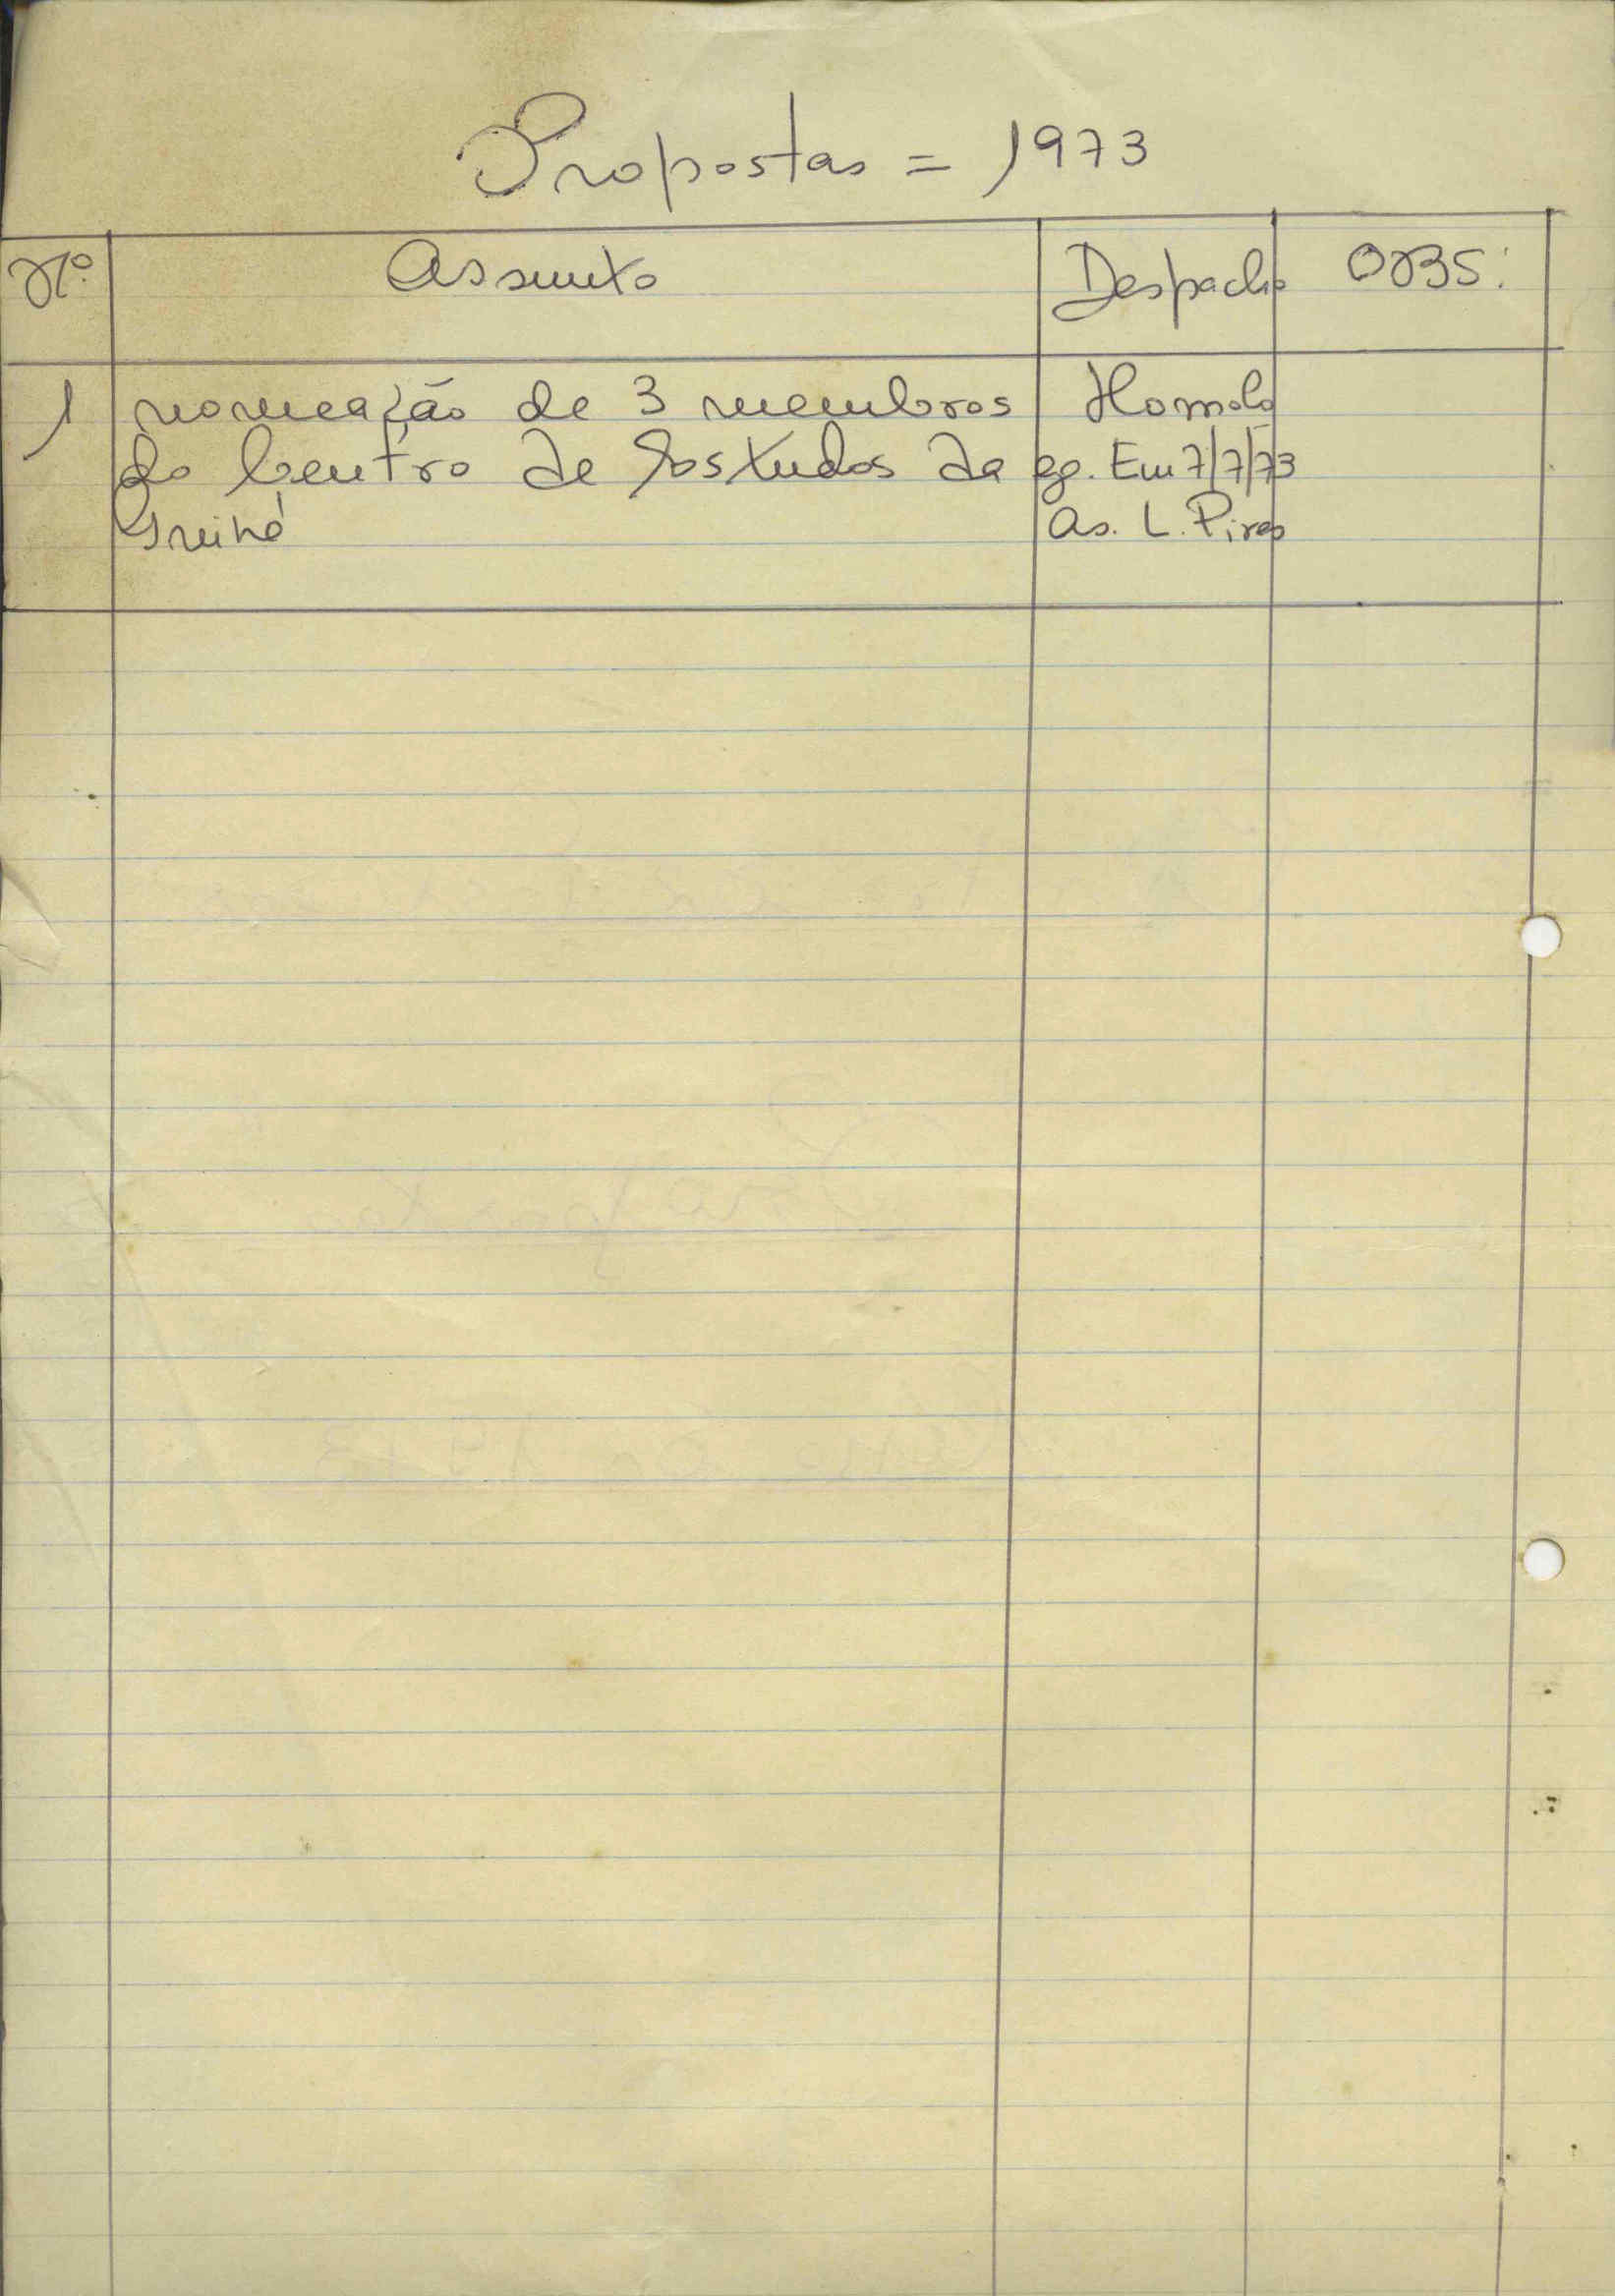 Propostas = 1973
Nº. Assunto Despacho OBS:
1 nomeação de 3 membros Homolo
do Centro de Estudos da go. Em 7/7/73
Guiné as. L. Pires